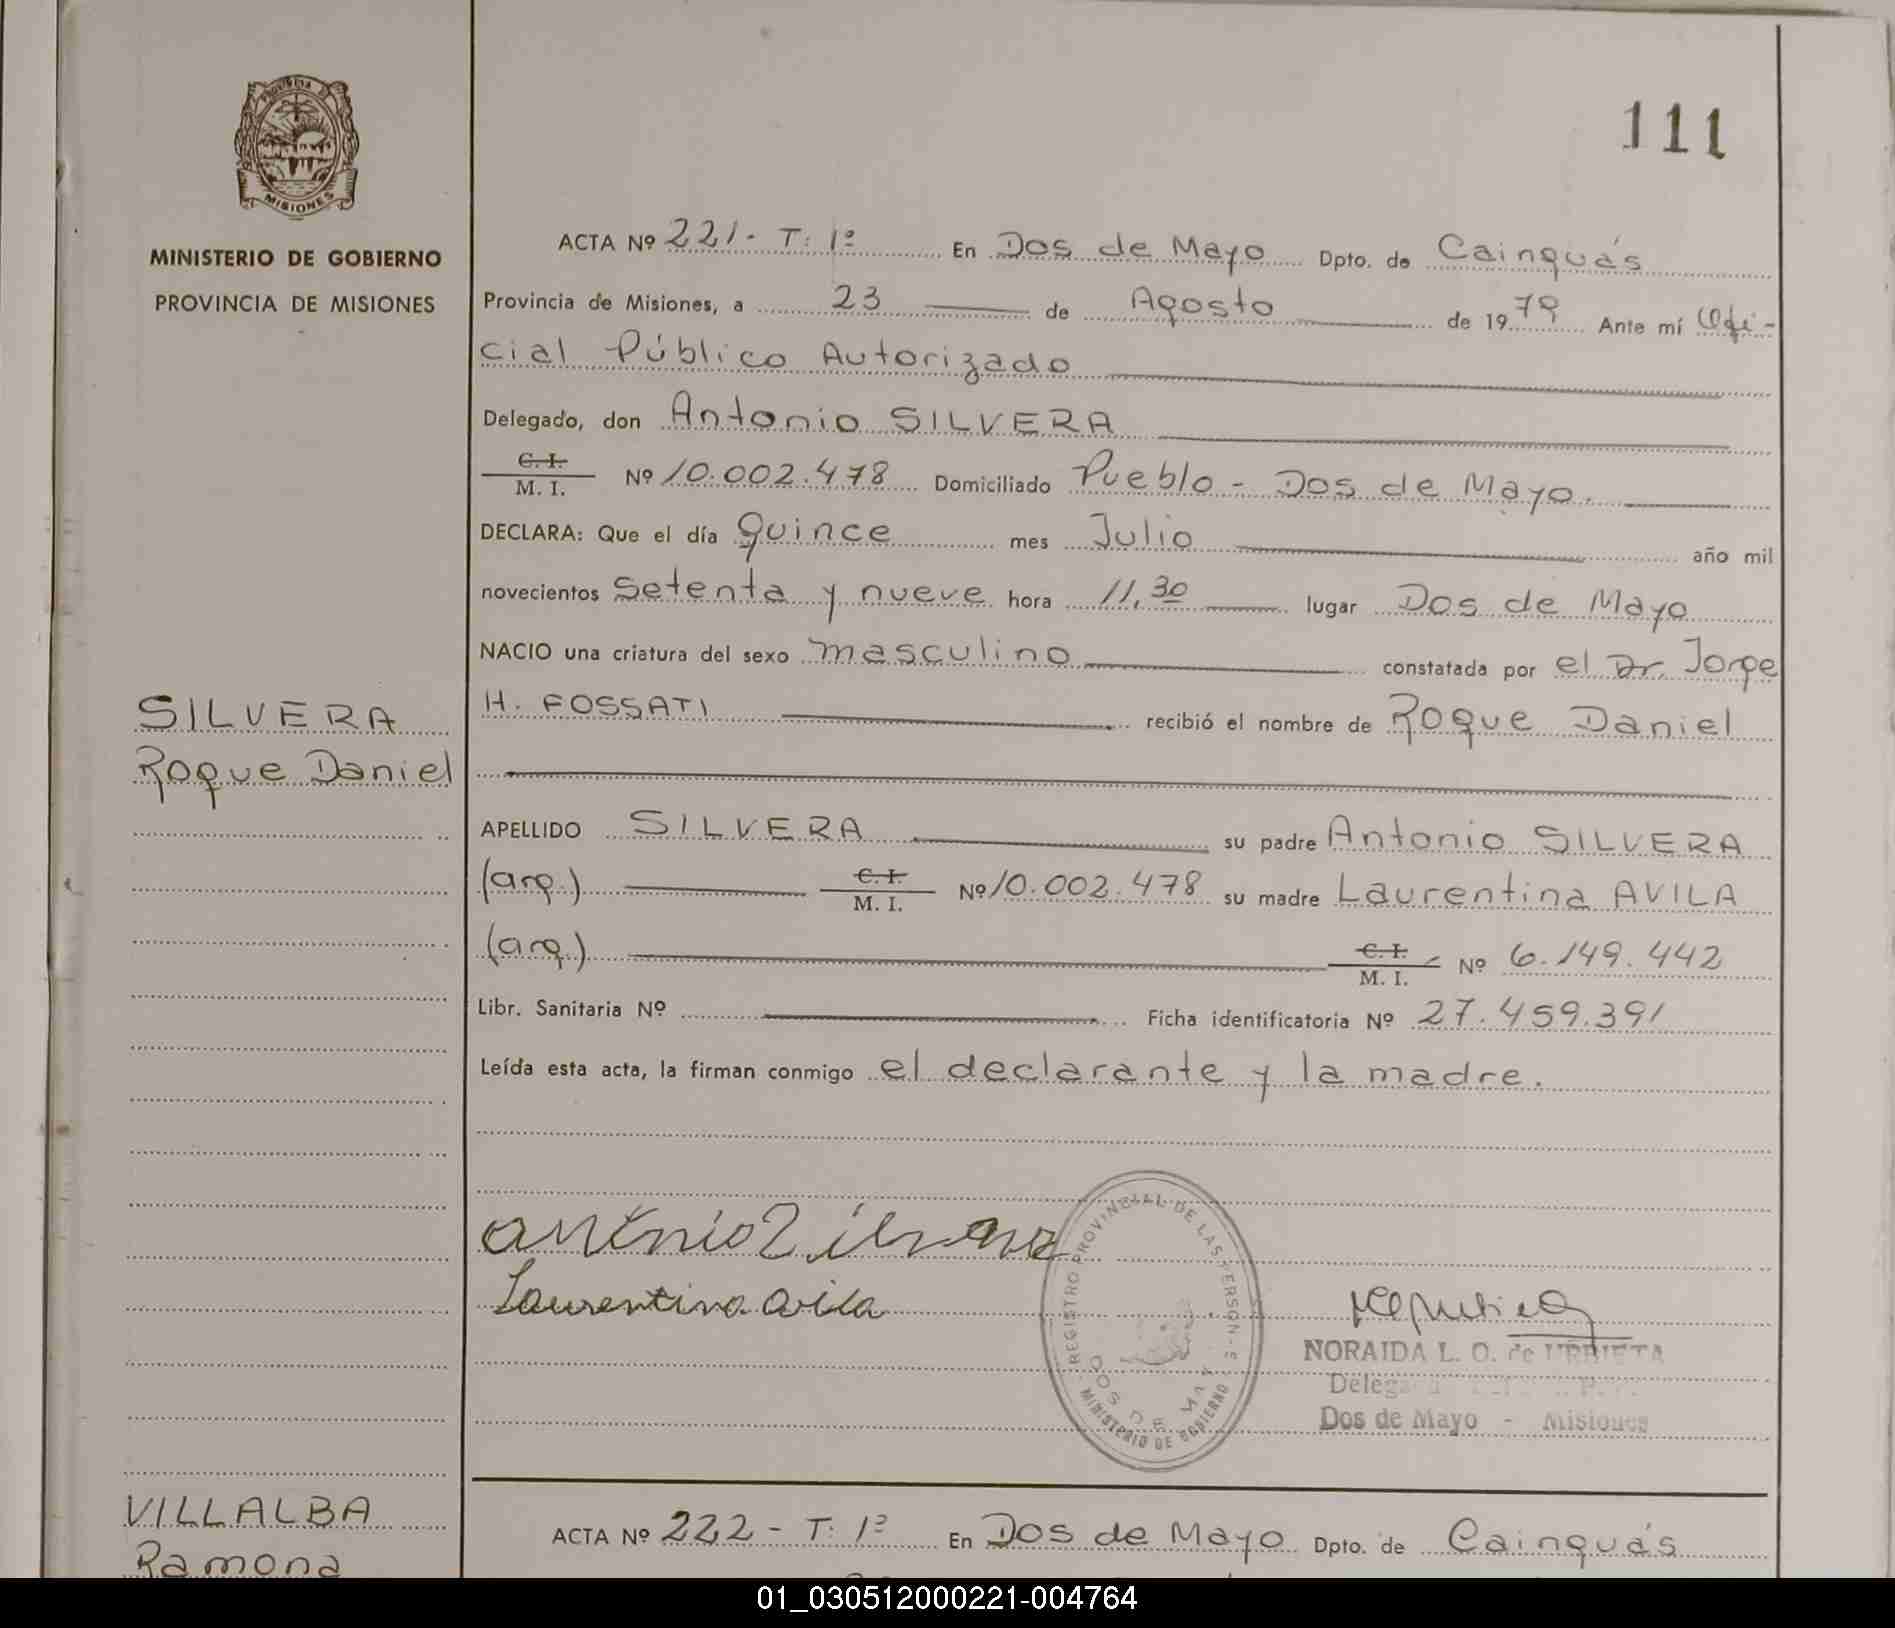 PROVINCIA DE
MISIONES
MINISTERIO DE GOBIERNO
PROVINCIA DE MISIONES
111
ACTA Nº 221 - T: 1º En Dos de Mayo Dpto. de Cainguás
Provincia de Misiones, a 23 de Agosto de 1979 Ante mí Ofi-
cial Público Autorizado
Delegado, don Antonio SILVERA
C. I.
M. I. Nº 10.002.478 Domiciliado Pueblo - Dos de Mayo.
DECLARA: Que el día quince mes Julio año mil
novecientos setenta y nueve hora 11,30 lugar Dos de Mayo
NACIO una criatura del sexo masculino constatada por el Dr. Jorge
H. FOSSATI recibió el nombre de Roque Daniel
SILVERA
Roque Daniel
APELLIDO SILVERA su padre Antonio SILVERA
(arg.) C. I. M. I. Nº 10.002.478 su madre Laurentina AVILA
(arg.) C. I. M. I. Nº 6.149.442
Libr. Sanitaria Nº Ficha identificatoria Nº 27.459.391
Leída esta acta, la firman conmigo el declarante y la madre.
antonio Silvera
Laurentina avila
REGISTRO PROVINCIAL DE LAS PERSONAS
DOS DE MAYO
MINISTERIO DE GOBIERNO
NORAIDA L. O. de URBIETA
Dos de Mayo - Misiones
VILLALBA
Ramona
ACTA Nº 222 - T: 1º En Dos de Mayo Dpto. de Cainguás
01_030512000221-004764